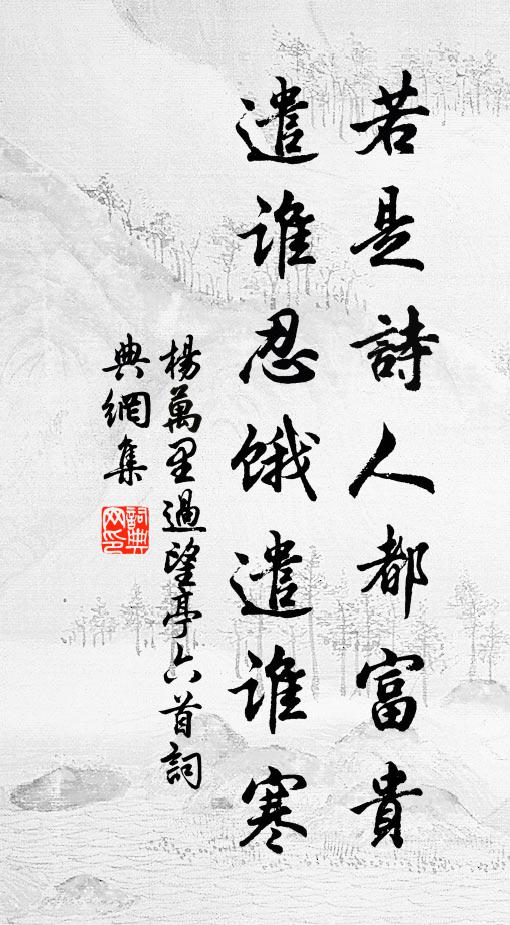 若是詩人都富貴
遣誰忍餓遣誰寒
楊萬里過望亭六首詞
典網集
詞典網印